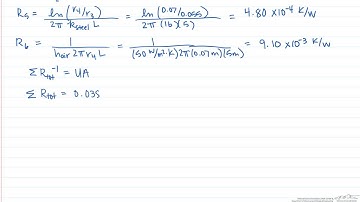 R₅ = ln(r₄/r₃) / 2π k steel L = ln(0.07/0.055) / 2π (16)(5) = 4.80 ×10⁻⁴ K/W
R₆ = 1 / hair 2π r₄ L = 1 / (50 W/m²·K) 2π(0.07m)(5m) = 9.10 ×10⁻³ K/W
Σ Rtot⁻¹ = UA
Σ Rtot = 0.035